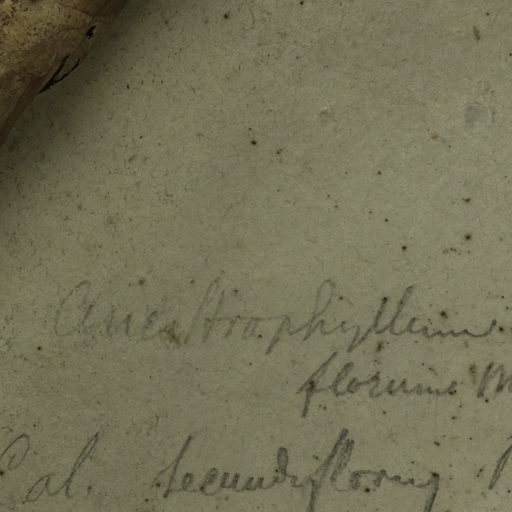 Anestrophyllum
florum M
Cal. secundiflorus